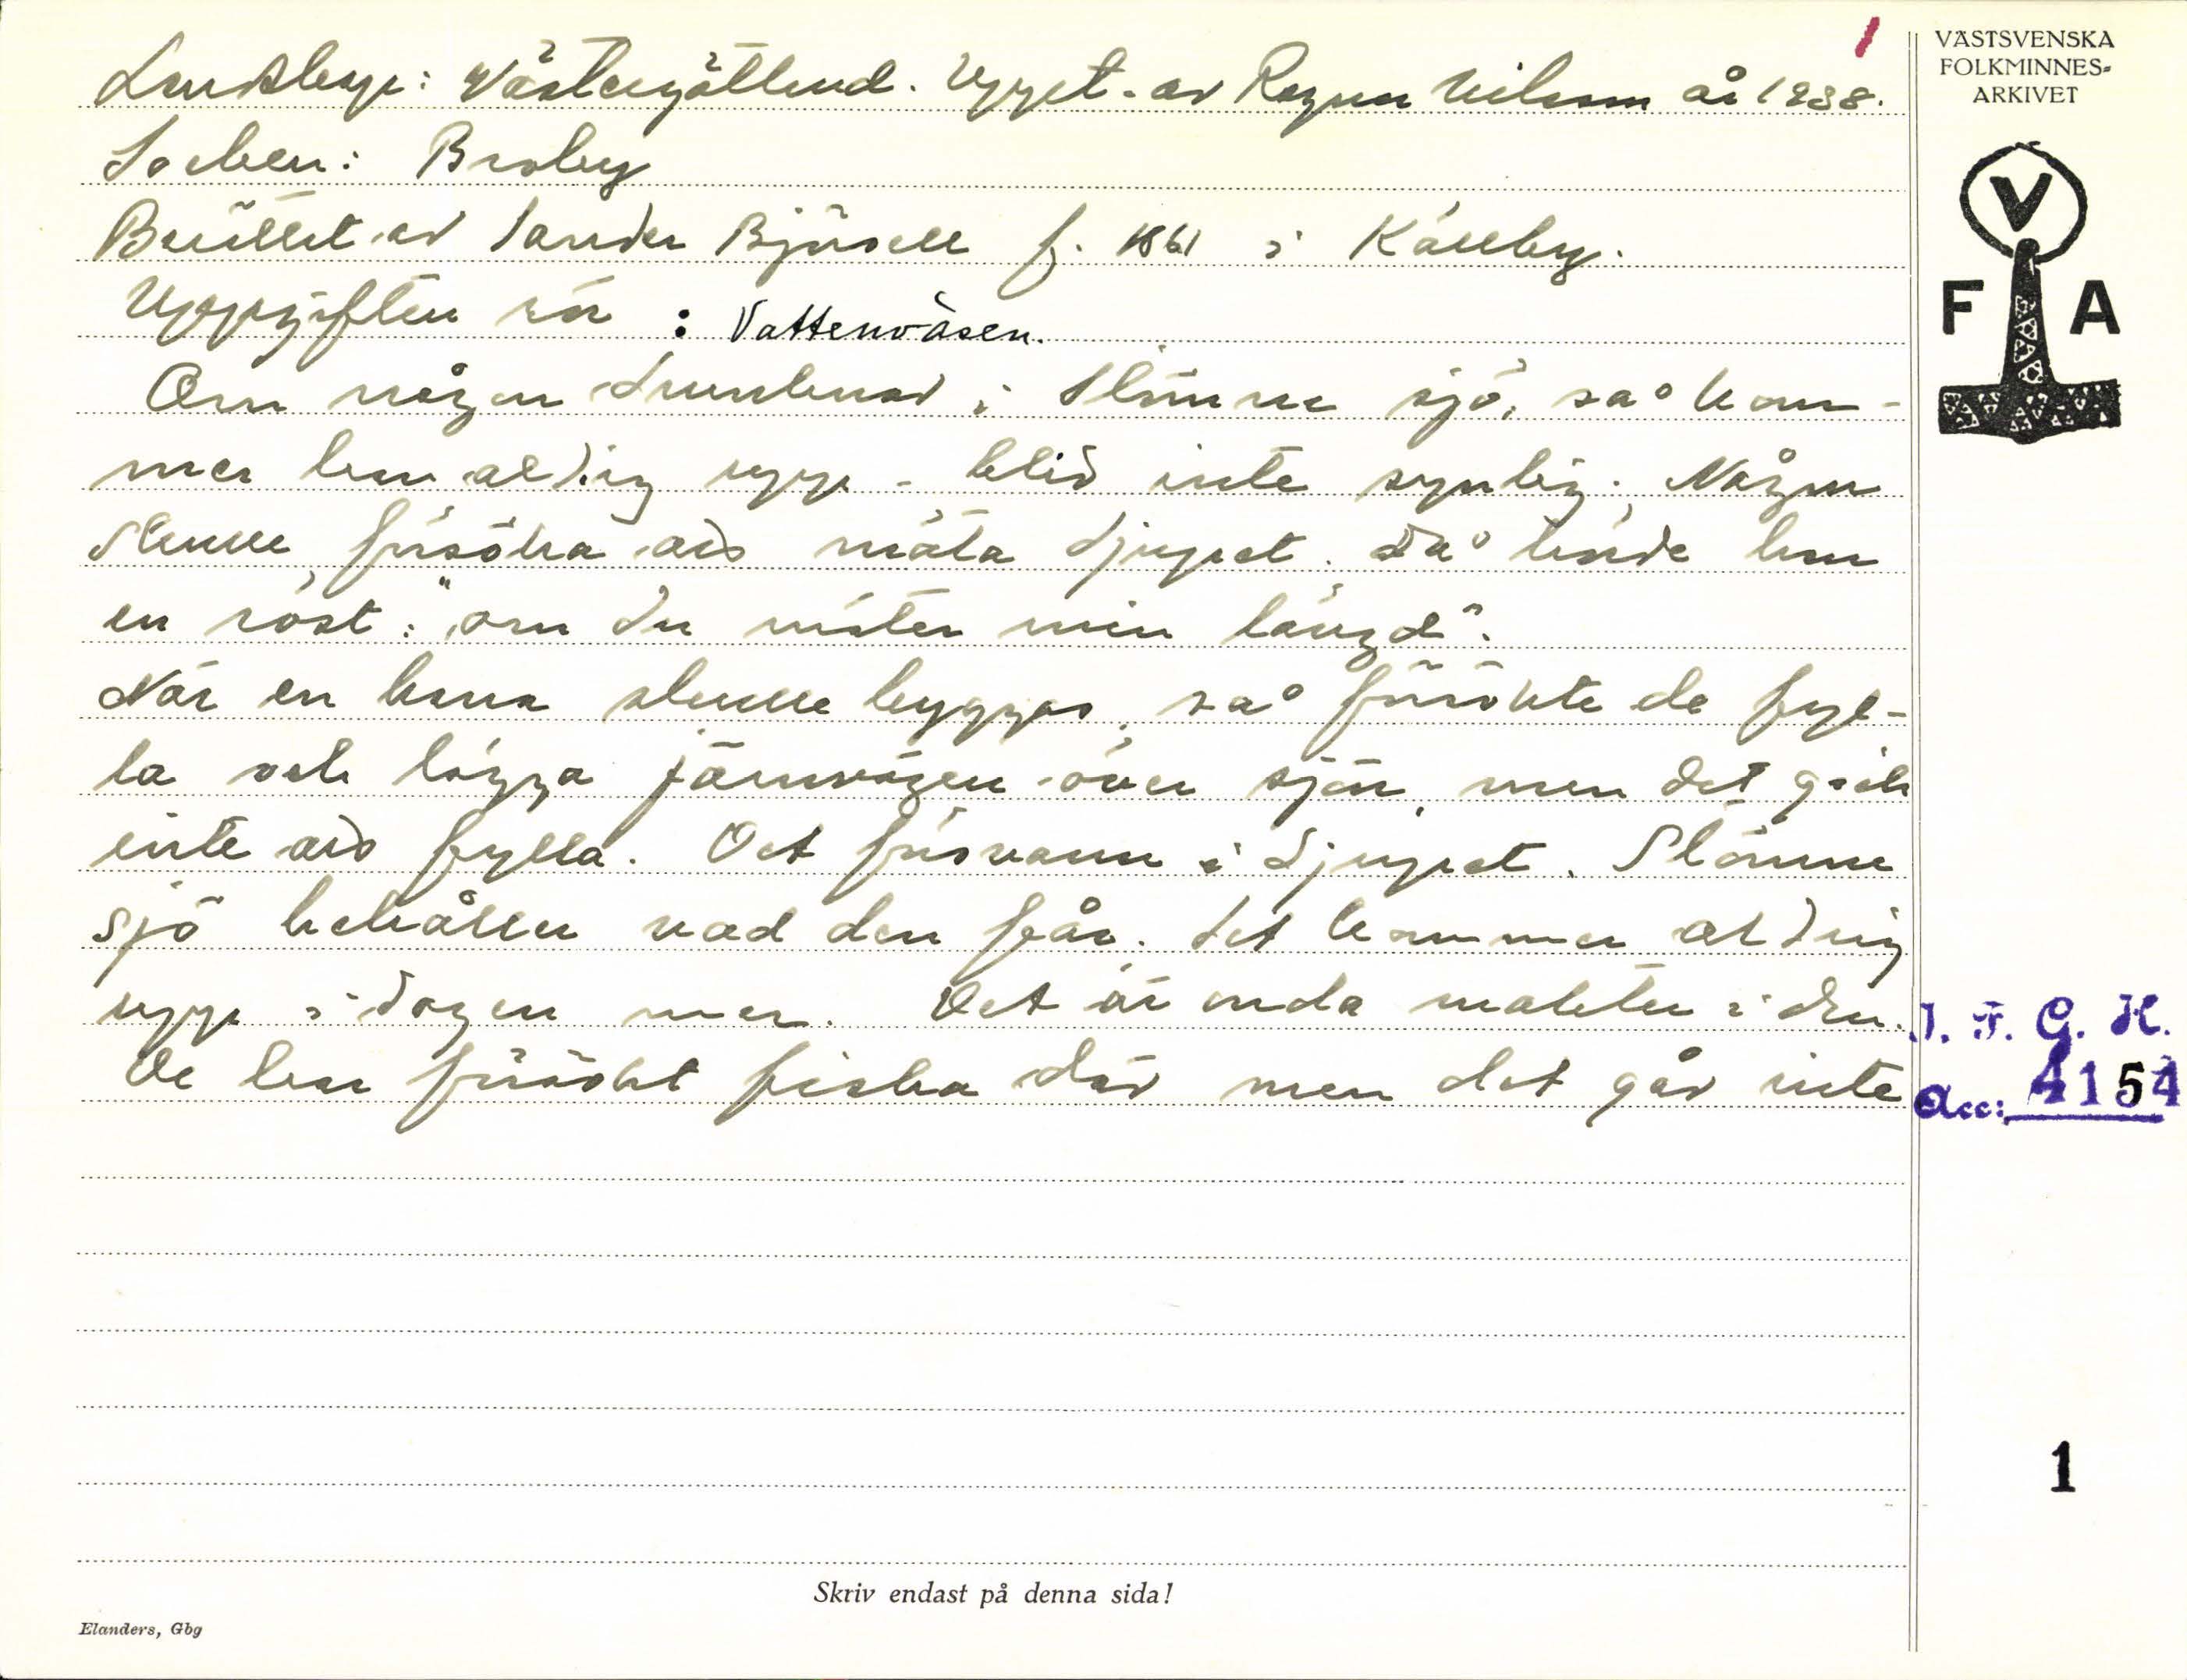 1
VÄSTSVENSKA
FOLKMINNES-
ARKIVET
Landskap: Västergötland. Uppt. av Ragnar Nilsson år 1938.
Socken: Broby
Berättat av Sander Björsell f. 1861 i Källby.
Uppgiften rör: Vattenväsen.
Om någon drunknar i Slämme sjö, så kom-
mer han aldrig upp - blir inte synlig. Någon
skulle försöka att mäta djupet. Då hörde han
en röst: "om du mäter min längd".
När en bana skulle byggas, så försökte de fyl-
la och lägga järnvägen över sjön, men det gick
inte att fylla. Det försvann i djupet. Slämme
sjö behåller vad den får. Det kommer aldrig
upp i dagen mer. Det är onda makter i den.
De har försökt fiska där men det går inte
V
F A
I. F. G. H.
Acc: 4154
1
Skriv endast på denna sida!
Elanders, Gbg